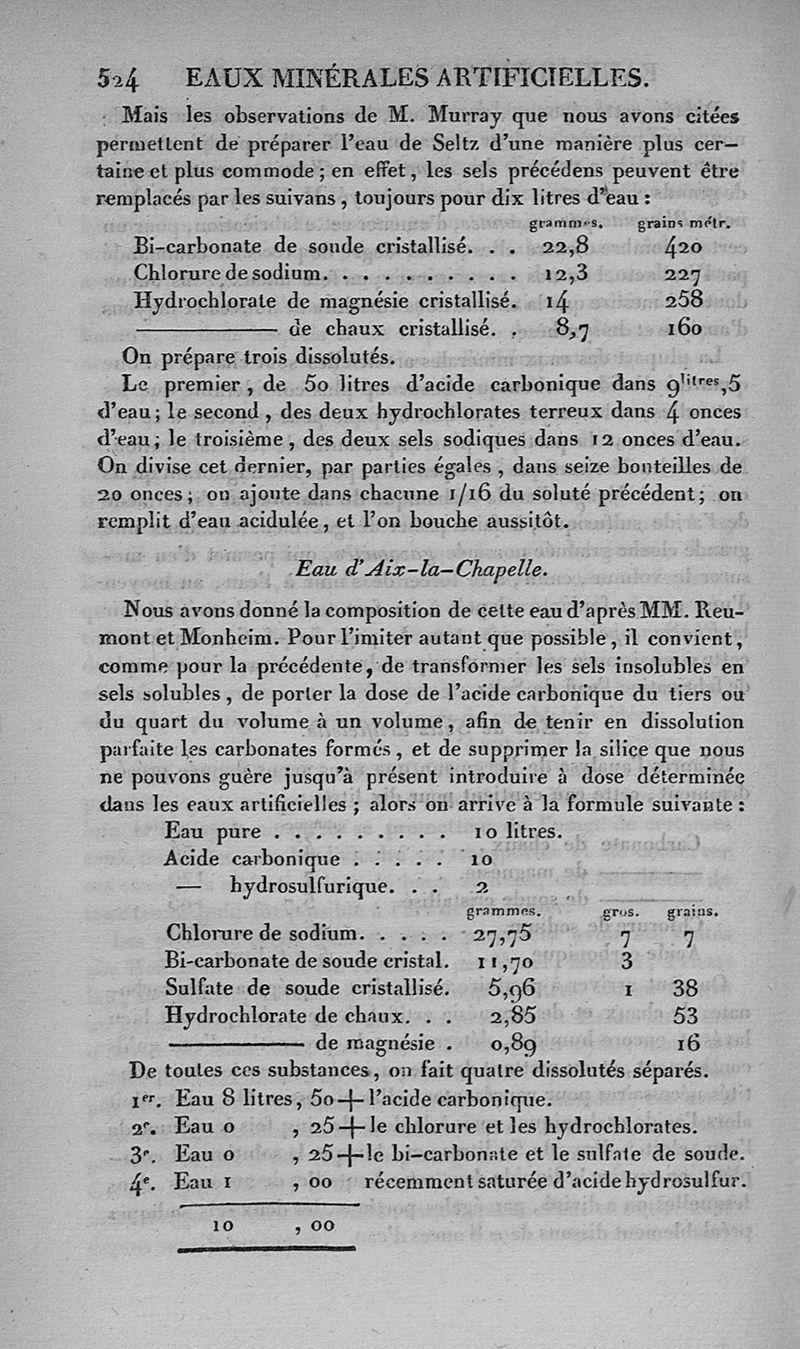 524 EAUX MINÉRALES ARTIFICIELLES.
Mais les observations de M. Murray que nous avons citées
permettent de préparer l'eau de Seltz d'une manière plus cer-
taine et plus commode ; en effet, les sels précédens peuvent être
remplacés par les suivans, toujours pour dix litres d'eau :
grammes. grains métr.
Bi-carbonate de soude cristallisé. . . 22,8 420
Chlorure de sodium. . . . . . . . . . 12,3 227
Hydrochlorate de magnésie cristallisé. 14 258
——— de chaux cristallisé. . 8,7 160
On prépare trois dissolutés.
Le premier, de 50 litres d'acide carbonique dans 9litres,5
d'eau ; le second, des deux hydrochlorates terreux dans 4 onces
d'eau ; le troisième, des deux sels sodiques dans 12 onces d'eau.
On divise cet dernier, par parties égales, dans seize bouteilles de
20 onces ; on ajoute dans chacune 1/16 du soluté précédent ; on
remplit d'eau acidulée, et l'on bouche aussitôt.
Eau d'Aix-la-Chapelle.
Nous avons donné la composition de cette eau d'après MM. Reu-
mont et Monheim. Pour l'imiter autant que possible, il convient,
comme pour la précédente, de transformer les sels insolubles en
sels solubles, de porter la dose de l'acide carbonique du tiers ou
du quart du volume à un volume, afin de tenir en dissolution
parfaite les carbonates formés, et de supprimer la silice que nous
ne pouvons guère jusqu'à présent introduire à dose déterminée
dans les eaux artificielles ; alors on arrive à la formule suivante :
Eau pure . . . . . . . . . 10 litres.
Acide carbonique . . . . . 10
— hydrosulfurique. . . 2
grammes. gros. grains.
Chlorure de sodium. . . . . 27,75 7 7
Bi-carbonate de soude cristal. 11,70 3
Sulfate de soude cristallisé. 5,96 1 38
Hydrochlorate de chaux. . . 2,85 53
——— de magnésie . 0,89 16
De toutes ces substances, on fait quatre dissolutés séparés.
1er. Eau 8 litres, 50 + l'acide carbonique.
2e. Eau 0 , 25 + le chlorure et les hydrochlorates.
3e. Eau 0 , 25 + le bi-carbonate et le sulfate de soude.
4e. Eau 1 , 00 récemment saturée d'acide hydrosulfur.
10 , 00